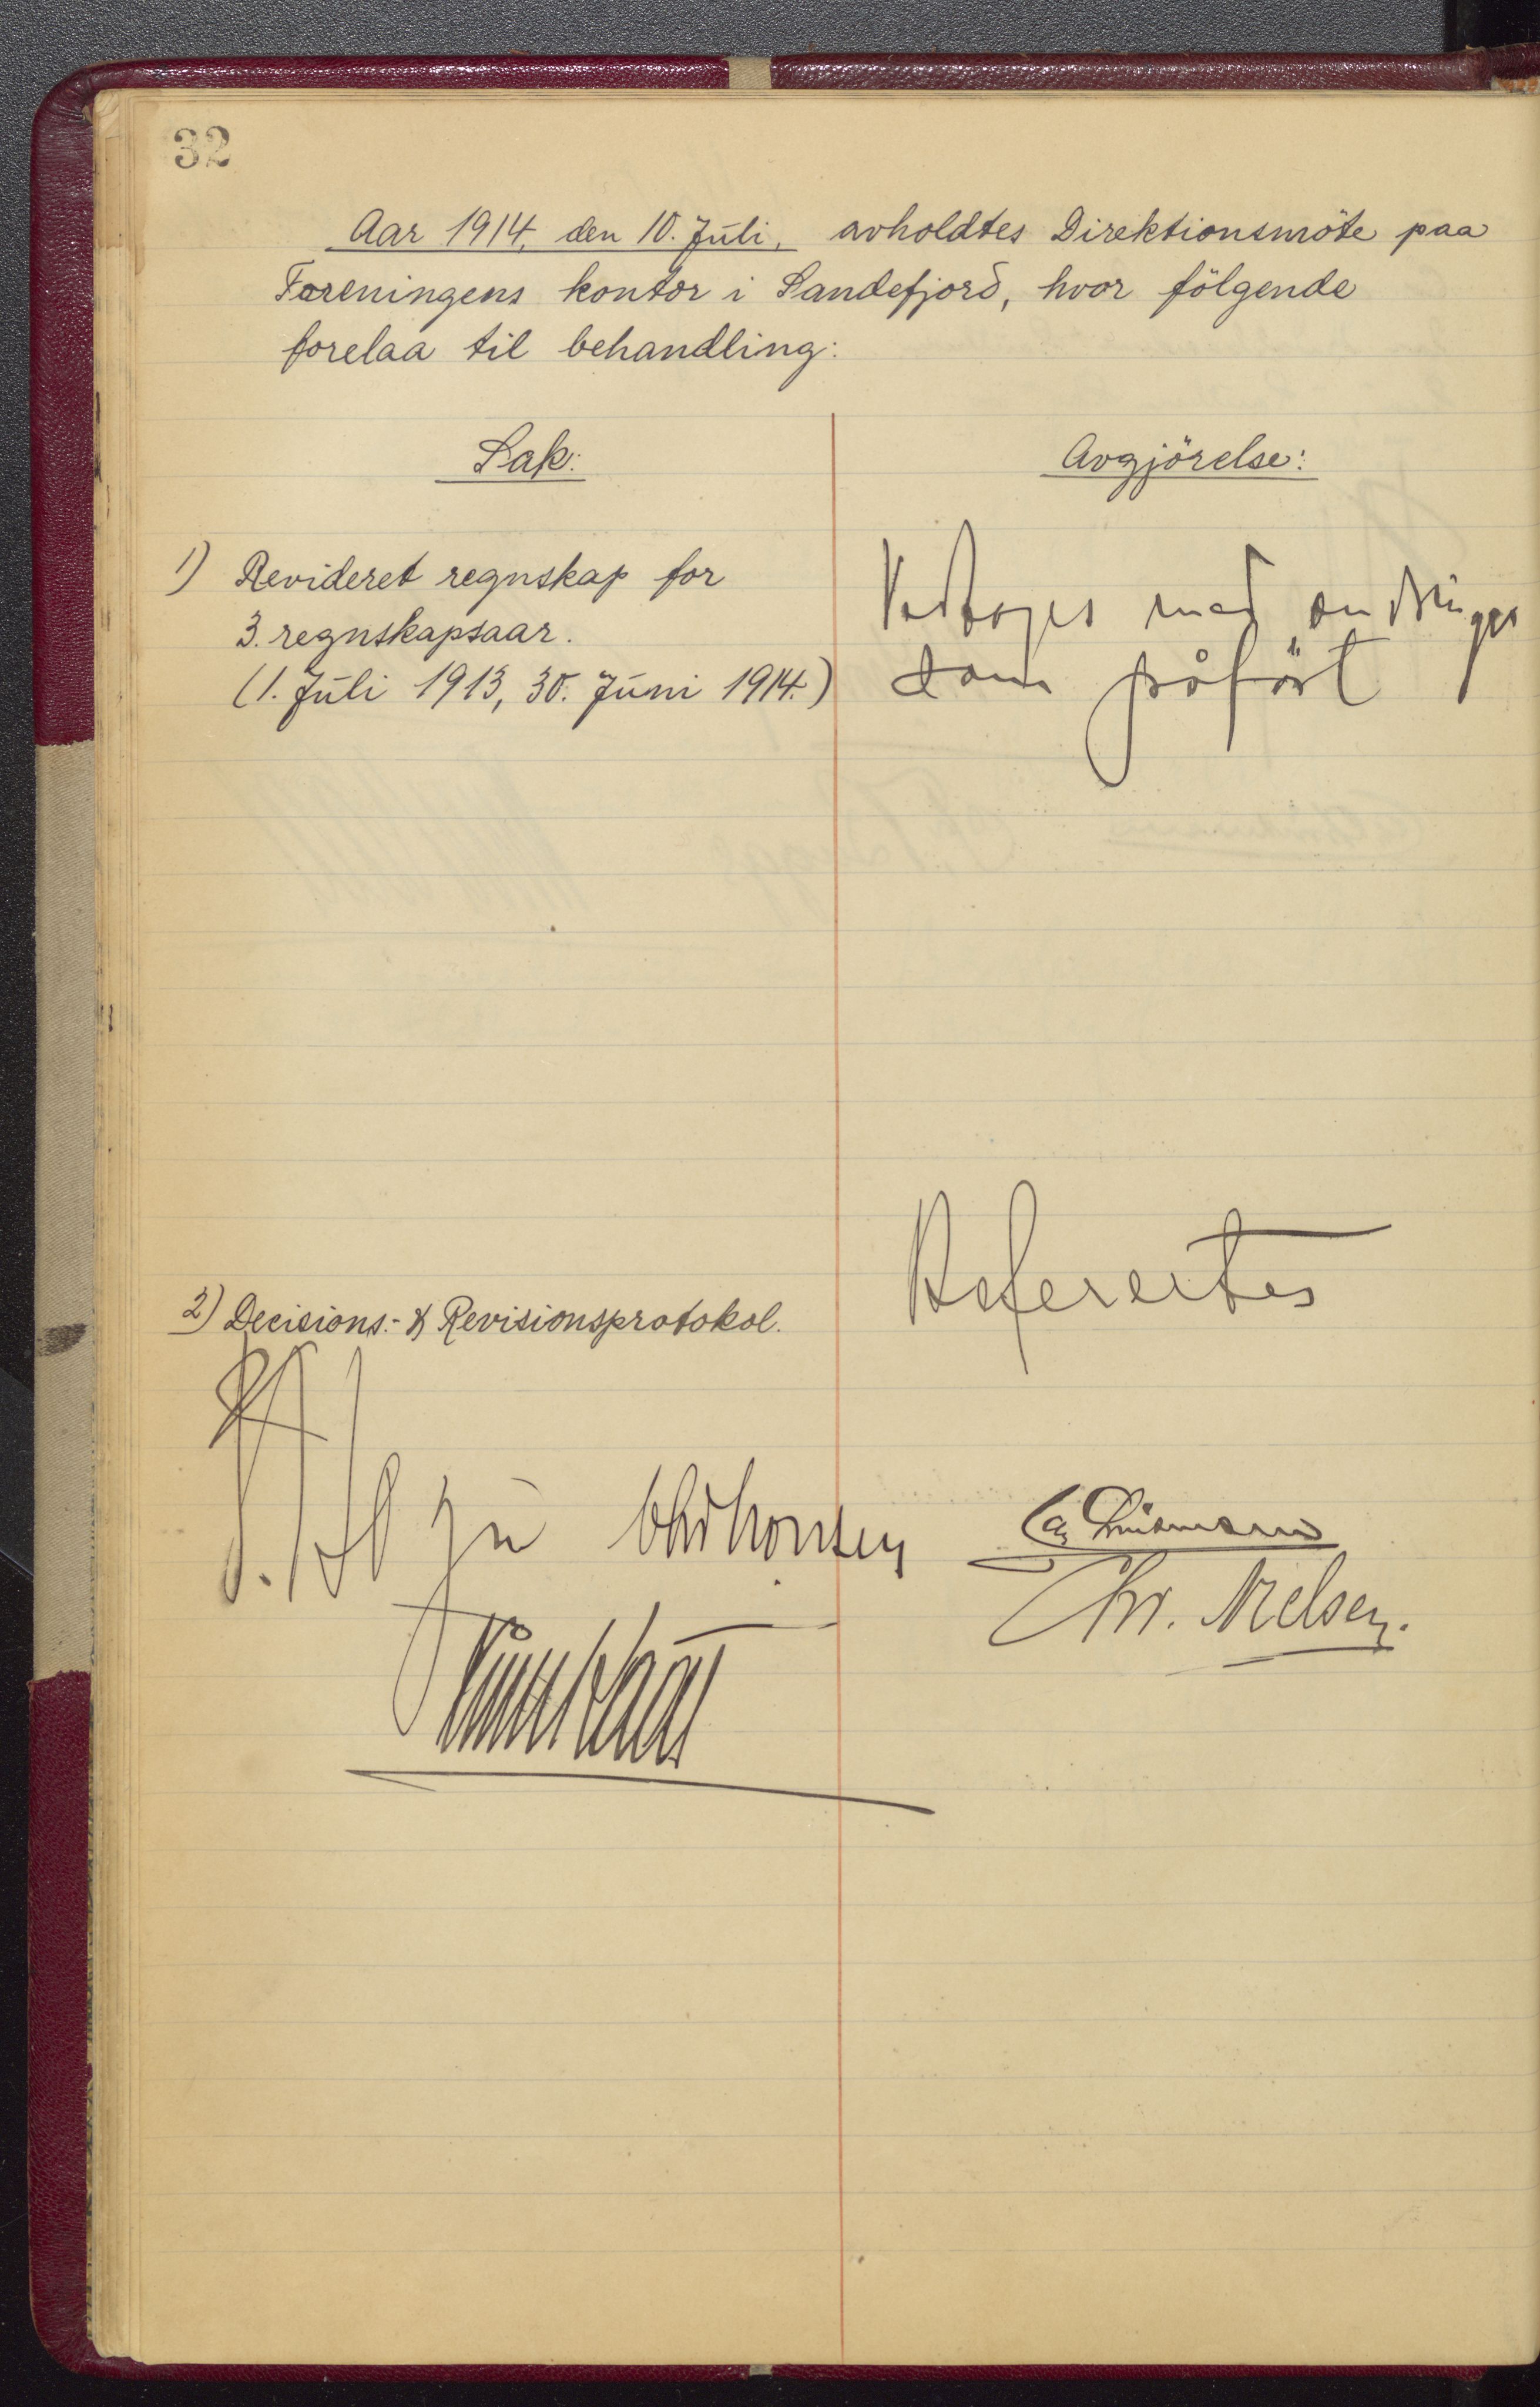 32
Aar 1914, den 10. Juli, avholdtes Direktionsmöte paa
Foreningens kontor i Sandefjord, hvor fölgende
forelaa til behandling:
Sak:
Avgjörelse:
1) Revideret regnskap for
3. regnskapsaar.
(1. Juli 1913, 30. Juni 1914.)
Vedtoges med
som påfört
2) Decisions- & Revisionsprotokol.
Refereertes
Chr. Nielsen.